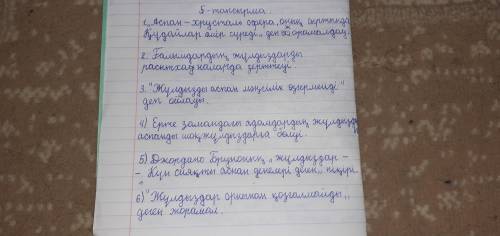 5-тапсырма.
1. "Аспан - хрусталь сфера, оның сыртында
Құдайлар өмір сүреді" деп жорамалдау.
2. Ғалымдардың жұлдыздарды
расытханаларда зерттеуі.
3. "Жұлдызды аспан мәңгілік өзгермейді"
деп ойлады.
4) Ерте замандағы адамдардың жұлдызды
аспанды шоқжұлдыздарға бөлуі.
5) Джордано Бруноның "жұлдыздар -
- Күн сияқты аспан денелері деген" пікірі.
6) "Жұлдыздар орнынан қозғалмайды"
деген жорамал.